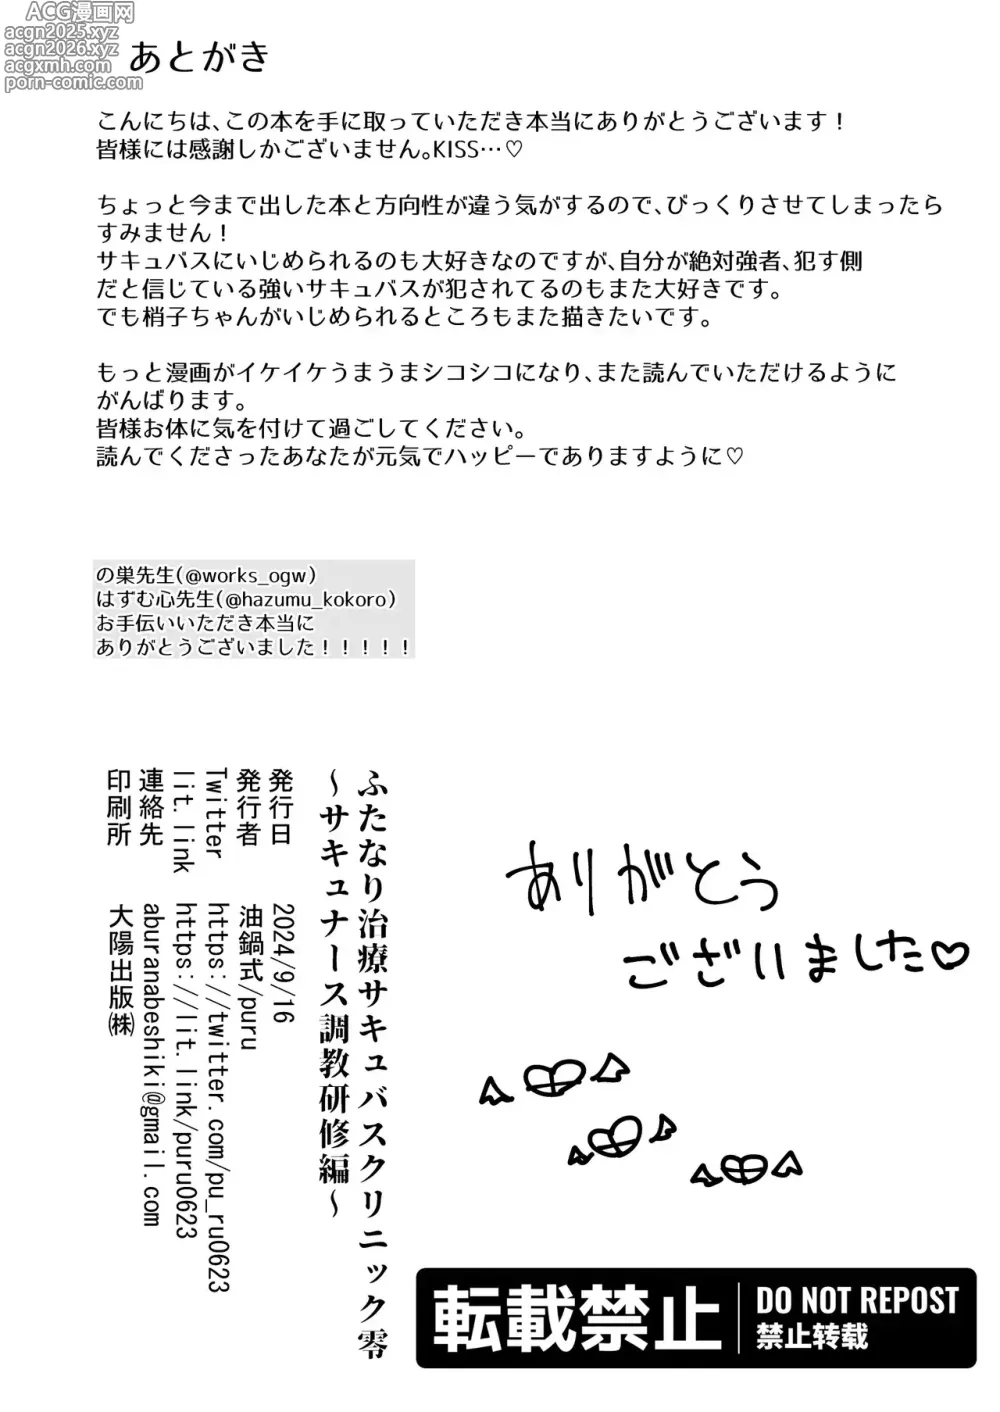 ACG漫画网
acgn2025.xyz
acgn2026.xyz
acgxmh.com
porn-comic.com
あとがき
こんにちは、この本を手に取っていただき本当にありがとうございます！
皆様には感謝しかございません。KISS…♡
ちょっと今まで出した本と方向性が違う気がするので、びっくりさせてしまったら
すみません！
サキュバスにいじめられるのも大好きなのですが、自分が絶対強者、犯す側
だと信じている強いサキュバスが犯されてるのもまた大好きです。
でも梢子ちゃんがいじめられるところもまた描きたいです。
もっと漫画がイケイケうまうまシコシコになり、また読んでいただけるように
がんばります。
皆様お体に気を付けて過ごしてください。
読んでくださったあなたが元気でハッピーでありますように♡
の巣先生(@works_ogw)
はずむ心先生(@hazumu_kokoro)
お手伝いいただき本当に
ありがとうございました！！！！！
ふたなり治療サキュバスクリニック零
～サキュナース調教研修編～
発行日 2024/9/16
発行者 油鍋式/puru
Twitter https://twitter.com/pu_ru0623
lit.link https://lit.link/puru0623
連絡先 aburanabeshiki@gmail.com
印刷所 大陽出版㈱
ありがとう
ございました♡
転載禁止
DO NOT REPOST
禁止转载